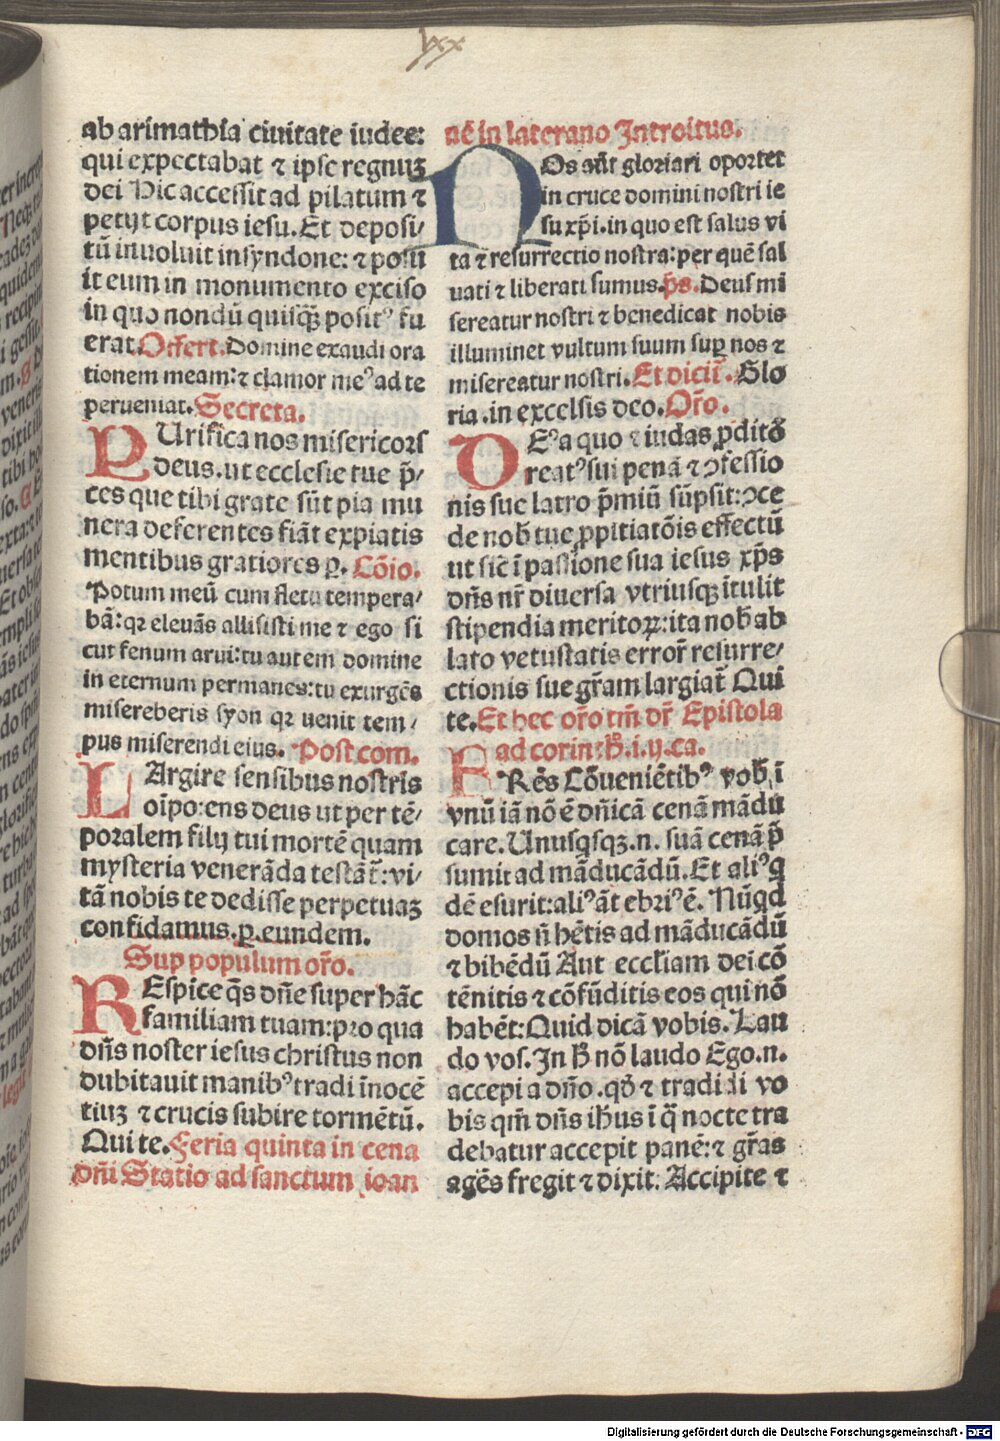 lxx
ab arimathia ciuitate iudee:
qui expectabat ⁊ ipse regnuʒ
dei Hic accessit ad pilatum ⁊
petijt corpus iesu. Et deposi/
tū inuoluit in syndone: ⁊ posu
it eum in monumento exciso
in quo nondū quisqꝫ̄ positꝰ fu
erat. Offert. Domine exaudi ora
tionem meam: ⁊ clamor meꝰ ad te
perueniat. Secreta.
PUrifica nos misericors
deus. ut ecclesie tue p̄/
ces que tibi grate sūt pia mu
nera deferentes fiāt expiatis
mentibus gratiores ꝑ. Cōio.
Potum meū cum fletu tempera/
bā: qꝛ eleuās allisisti me ⁊ ego si
cut fenum arui: tu autem domine
in eternum permanes: tu exurgēs
misereberis syon qꝛ uenit tem/
pus miserendi eius. Post com.
LArgire sensibus nostris
oīpo: ens deus ut per tē/
poralem filij tui mortē quam
mysteria venerāda testāt̄: vi/
tā nobis te dedisse perpetuaʒ
confidamus. ꝑ. eundem.
Sup populum or̄o.
REspice q̄s dn̄e super hāc
familiam tuam: pro qua
dn̄s noster iesus christus non
dubitauit manibꝰ tradi īnocē
tiuʒ ⁊ crucis subire tormētū.
Qui te. Feria quinta in cena
dn̄i Statio ad sanctum ioan
nē in laterano Introitus.
NOs aūt gloriari oportet
in cruce domini nostri ie
su xp̄i. in quo est salus vi
ta ⁊ resurrectio nostra: per quē sal
uati ⁊ liberati sumus. p̄s. Deus mi
sereatur nostri ⁊ benedicat nobis
illuminet vultum suum suꝑ nos ⁊
misereatur nostri. Et dicit̄. Glo
ria. in excelsis deo. Or̄o.
DEꝰ a quo ⁊ iudas ꝓditō
reatꝰ sui penā ⁊ ↄfessio
nis sue latro p̄miū sūpsit: ↄce
de nob̄ tue ꝓpitiatōis effectū
ut sic̄ ī passione sua iesus xp̄s
dn̄s nr̄ diuersa vtriusqꝫ ītulit
stipendia meritoꝝ: ita nob̄ ab
lato vetustatis error̄ resurre/
ctionis sue gr̄am largiat̄ Qui
te. Et hec or̄o tm̄ dr̄ Epistola
ad corinth̄. i. ij. ca.
FRēs Cōueniētibꝰ vob̄ ī
vnū iā nō ē dn̄icā cenā mādu
care. Unusqsqꝫ. n. suā cenā p̄
sumit ad māducādū. Et aliꝰ q
dē esurit: aliꝰ āt ebriꝰ ē. Nūqd
domos n̄ hētis ad māducādū
⁊ bibēdū Aut eccl̄iam dei cō
tēnitis ⁊ cōfūditis eos qui nō
habēt: Quid dicā vobis. Lau
do vos. In h̄ nō laudo Ego. n.
accepi a dn̄o. qd̄ ⁊ tradidi vo
bis qm̄ dn̄s ih̄us ī q̄ nocte tra
debatur accepit panē: ⁊ gr̄as
agēs fregit ⁊ dixit: Accipite ⁊
Digitalisierung gefördert durch die Deutsche Forschungsgemeinschaft - DFG